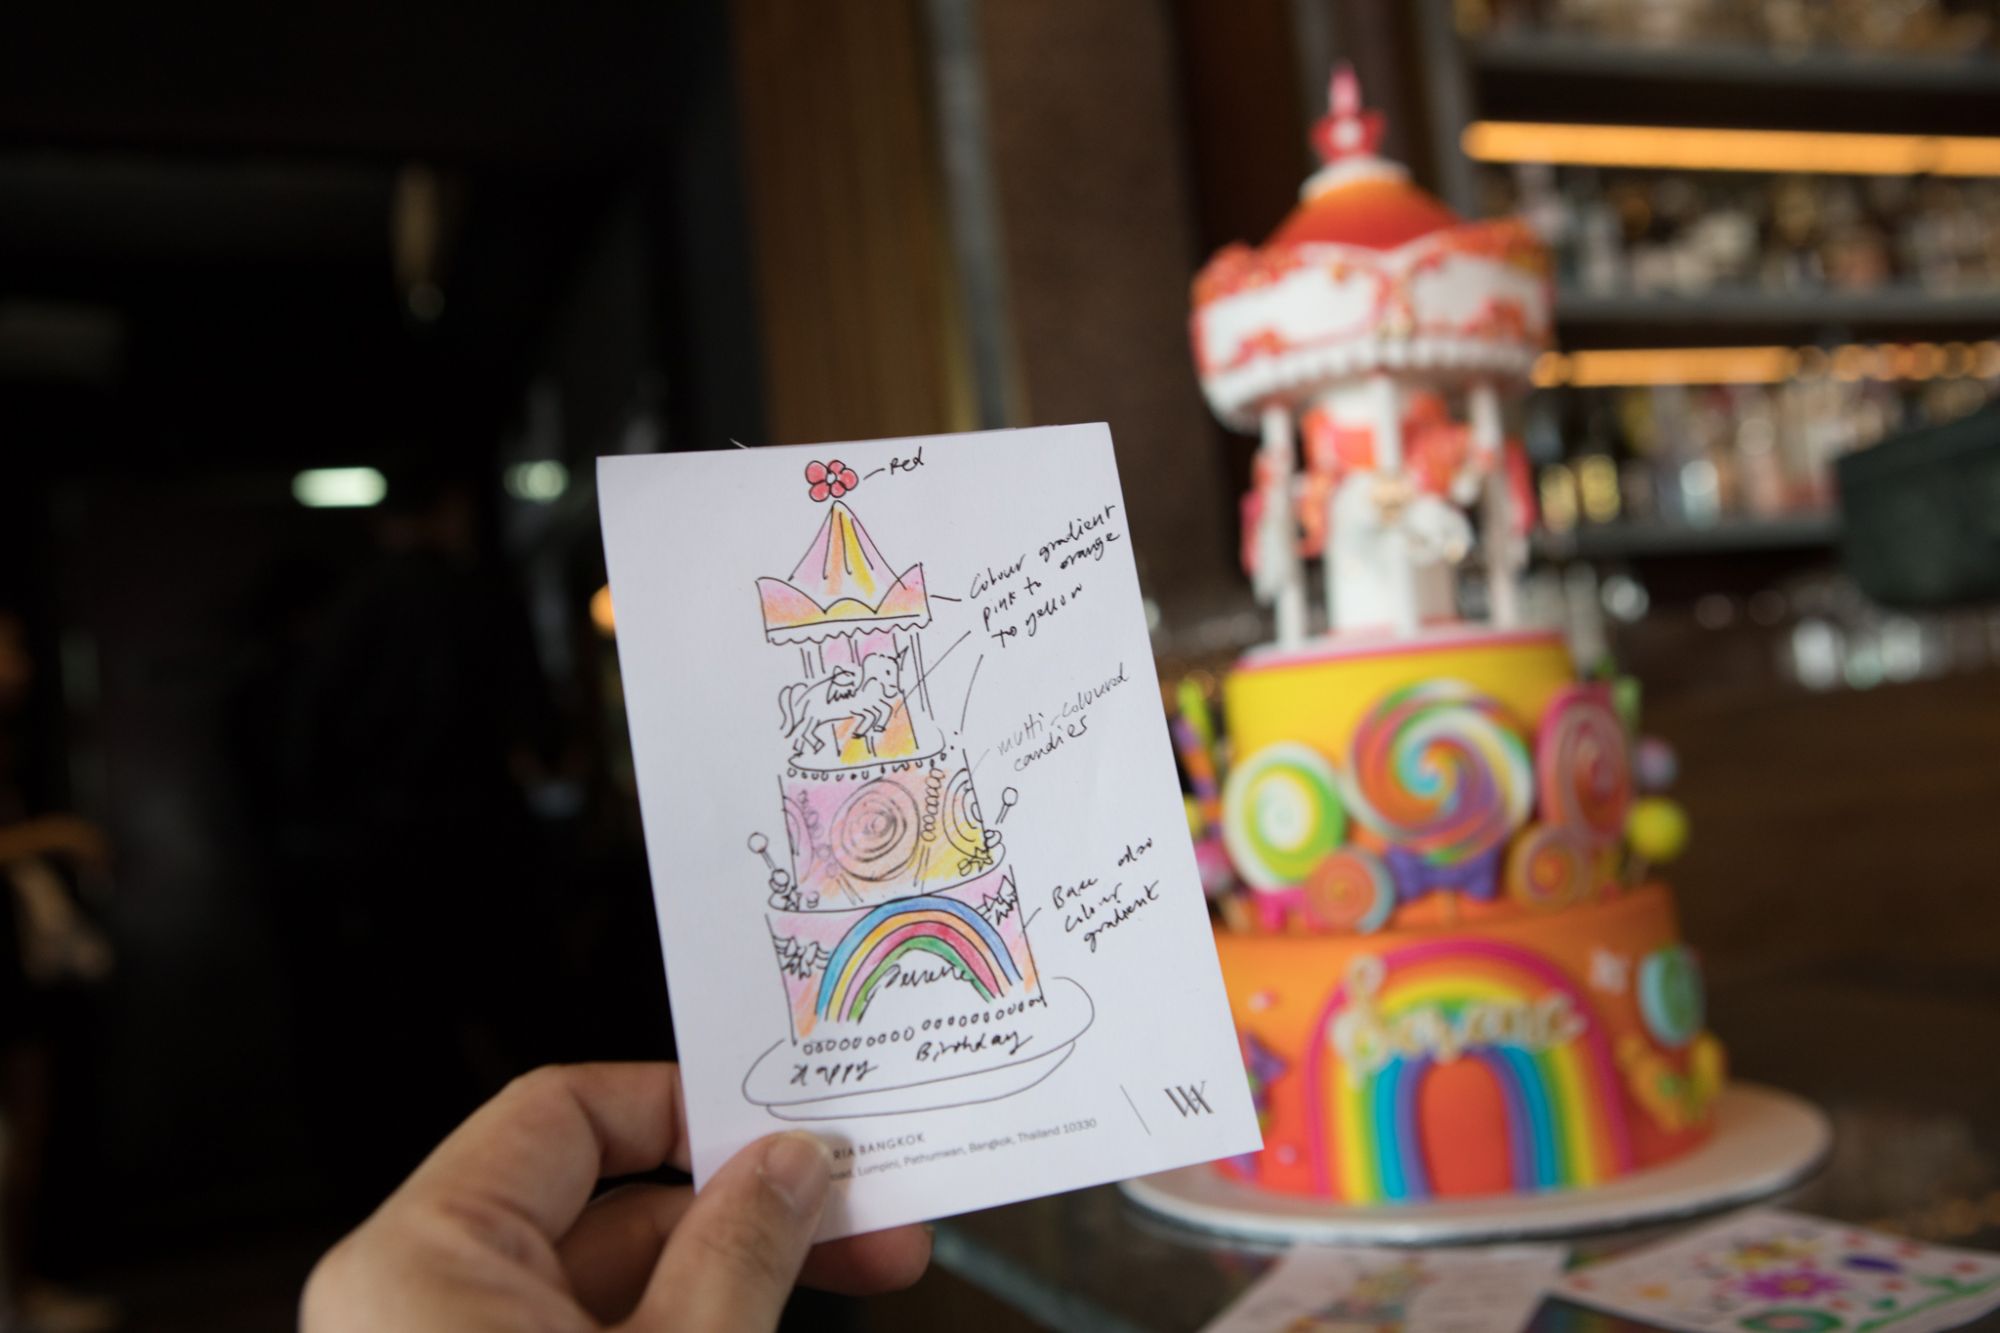 Red
Colour gradient
pink to orange
to yellow
multi-coloured
candies
Base also
colour
gradient
Happy Birthday
RIA BANGKOK
oad, Lumpini, Pathumwan, Bangkok, Thailand 10330